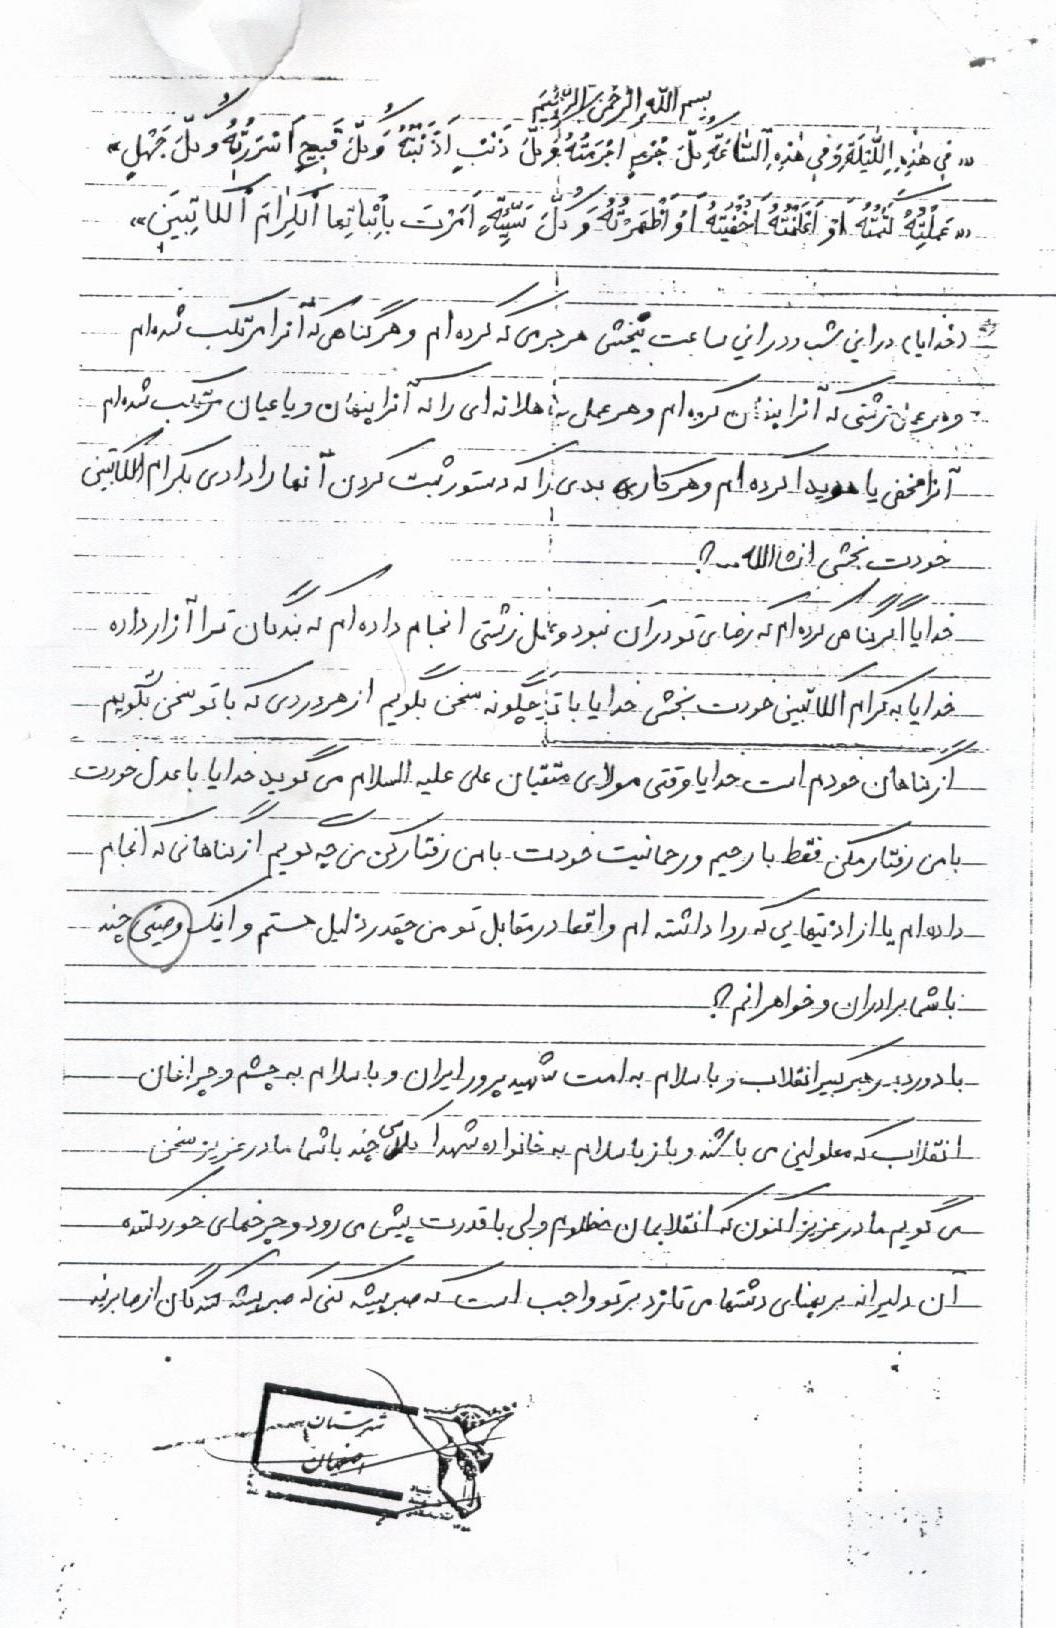 بسم الله الرحمن الرحیم
«فی هٰذِهِ اللَّیلَةِ وَ فی هٰذِهِ السّٰاعَةِ کُلَّ جُرْمٍ اَجْرَمْتُهُ وَ کُلَّ ذَنْبٍ اَذْنَبْتُهُ وَ کُلَّ قَبیحٍ اَسْرَرْتُهُ وَ کُلَّ جَهْلٍ»
«عَمِلْتُهُ کَتَمْتُهُ اَوْ اَعْلَنْتُهُ اَخْفَیْتُهُ اَوْ اَظْهَرْتُهُ وَ کُلَّ سَیِّئَةٍ اَمَرْتَ بِاِثْباتِهَا اَلْکِرٰامَ اَلْکاتِبینَ»
(خدایا) در این شب و در این ساعت ببخشی هر جرمی که کرده ام و هر گناهی که آنرا مرتکب شده ام
و هر عمل زشتی که آنرا پنهان کرده ام و هر عمل جاهلانه ای را که آنرا پنهان و یا عیان مرتکب شده ام
آنرا مخفی یا هویدا کرده ام و هر کار بدی را که دستور ثبت کردن آنها را دادی بکرام الکاتبینی
خودت بخشی انشاالله ...؟
خدایا اگر گناهی کرده ام که رضای تو در آن نبود و عمل زشتی انجام داده ام که بندگان ترا آزار داده
خدایا به کرام الکاتبینی خودت بخشی خدایا با تو چگونه سخن بگویم از هر دردی که با تو سخن بگویم
از گناهان خودم است خدایا وقتی مولای متقیان علی علیه السلام می گوید خدایا با عدل خودت
با من رفتار مکن فقط با رحیم و رحمانیت خودت با من رفتار کن من چه گویم از گناهانی که انجام
داده ام یا از اذیتهایی که روا داشته ام واقعا در مقابل تو من چقدر ذلیل هستم و اینک وصیتی چند
با شما برادران و خواهرانم ؟
با درود به رهبر کبیر انقلاب و با سلام به امت شهید پرور ایران و با سلام به چشم و چراغان
انقلاب که معلولینی می باشند و باز با سلام به خانواده شهدا کلامی چند با شما مادر عزیز سخن
می گویم مادر عزیز اکنون که انقلابمان مظلوم ولی با قدرت پیش می رود و چرخهای خورد کننده
آن دلیرانه بر پهنای دشتها می تازد بر تو واجب است که صبر پیشه کنی که صبر پیشه کنندگان از صابرند
شهرستان
اصفهان